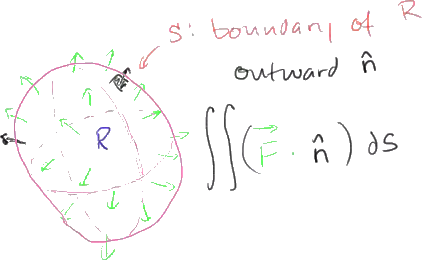 S: boundary of R
outward n̂
R
∬(F⃗ · n̂) dS